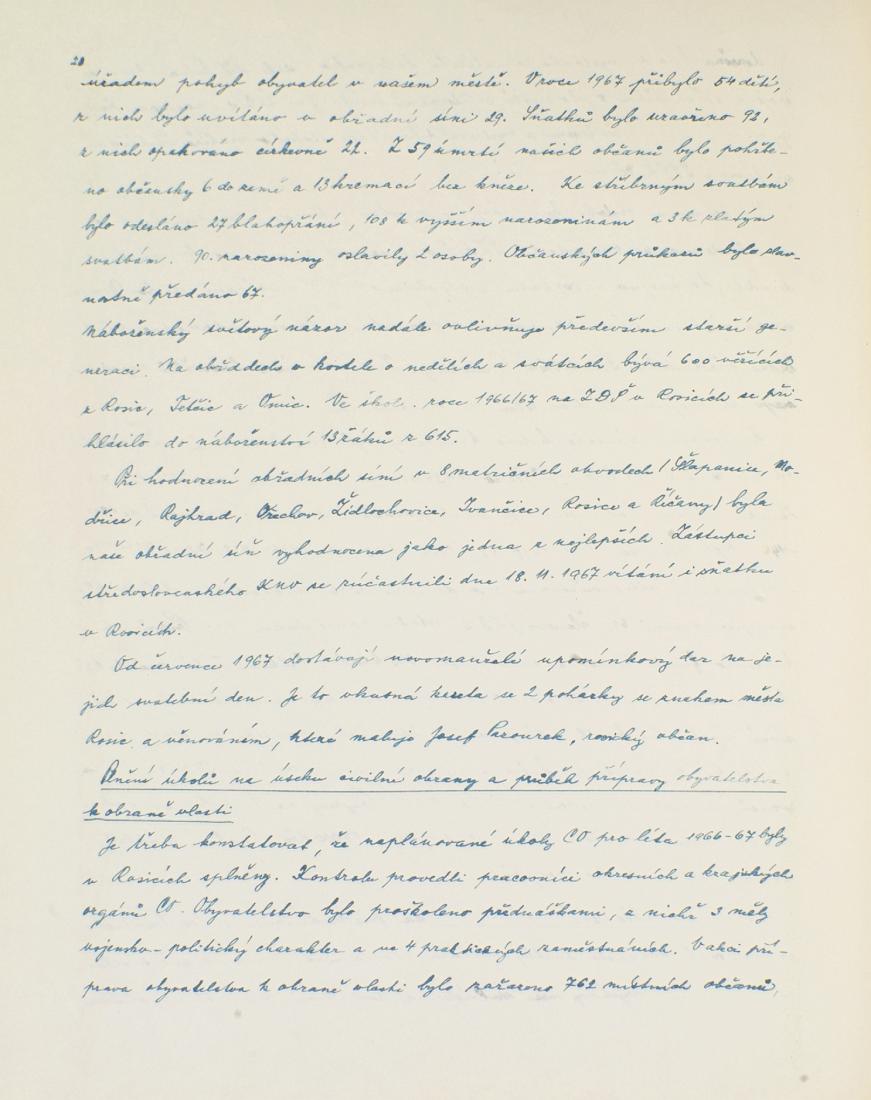 20
úřadem pohyb obyvatel v našem městě. V roce 1967 přibylo 54 dětí,
z nich bylo uvítáno v obřadní síni 29. Sňatků bylo uzavřeno 92,
z nich opakováno církevně 22. Z 59 úmrtí našich občanů bylo pohřbe-
no občansky 6 do země a 13 kremací bez kněze. Ke stříbrným svatbám
bylo odesláno 27 blahopřání, 108 k vyšším narozeninám a 3 k zlatým
svatbám. 90. narozeniny oslavily 2 osoby. Občanských průkazů bylo slav-
nostně předáno 67.
Náboženský světový názor nadále ovlivňuje především starší ge-
neraci. Na obřadech v kostele o nedělích a svátcích bývá 600 věřících
z Rosic, Tetčic a Omic. Ve škol. roce 1966/67 na ZDŠ v Rosicích se při-
hlásilo do náboženství 13 žáků z 615.
Při hodnocení obřadních síní v 8 matričních obvodech (Šlapanice, Mo-
dřice, Rajhrad, Ořechov, Židlochovice, Ivančice, Rosice a Říčany) byla
naše obřadní síň vyhodnocena jako jedna z nejlepších. Zástupci
středoslovenského KNV se zúčastnili dne 18. 11. 1967 vítání i sňatku
v Rosicích.
Od července 1967 dostávají novomanželé upomínkový dar na je-
jich svatební den. Je to vkusná kazeta se 2 pohárky se znakem města
Rosic a věnováním, které maluje Josef Pazourek, rosický občan.
Plnění úkolů na úseku civilní obrany a průběh přípravy obyvatelstva
k obraně vlasti
Je třeba konstatovat, že naplánované úkoly CO pro léta 1966-67 byly
v Rosicích splněny. Kontrolu provedli pracovníci okresních a krajských
orgánů CO. Obyvatelstvo bylo proškoleno přednáškami, z nichž 3 měly
vojensko-politický charakter a ve 4 praktických zaměstnáních. V akci pří-
prava obyvatelstva k obraně vlasti bylo zařazeno 762 místních občanů,